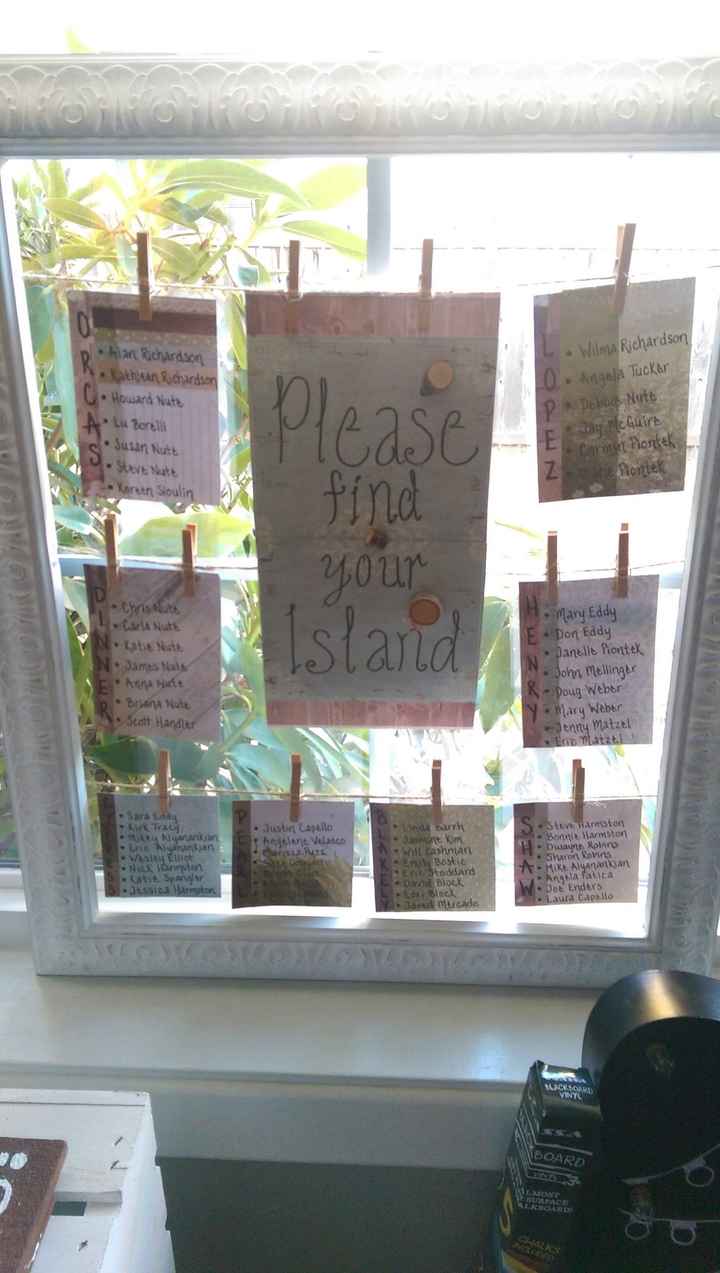 ORCAS
• Alan Richardson
• Kathleen Richardson
• Howard Nute
• Lu Borelli
• Susan Nute
• Steve Nute
• Kareen Sloulin
Please
find
your
Island
LOPEZ
• Wilma Richardson
• Angela Tucker
• Debbie Nute
• Jay McGuire
• Carmen Piontek
Piontek
DINNER
• Chris Nute
• Carla Nute
• Katie Nute
• James Nute
• Anna Nute
• Briana Nute
• Scott Handler
HENRY
• Mary Eddy
• Don Eddy
• Janelle Piontek
• John Mellinger
• Doug Weber
• Mary Weber
• Jenny Matzel
• Eric Matzel
• Sara Eddy
• Kirk Tracy
• Mikey Alyanankian
• Eric Alyanankian
• Wesley Elliot
• Nick Harmston
• Katie Spangler
• Jessica Harmston
• Justin Capello
• Angelene Velasco
BLAKELY
• Linda
• Kim
• Will Cashman
• Emily Bostic
• Eric Stoddard
• David Block
• Lori Block
• Jared Mercado
SHAW
• Steve Harmston
• Bonnie Harmston
• Dwayne Rohns
• Sharon Rohns
• Mike Alyanankian
• Angela Patica
• Joe Enders
• Laura Capello
BLACKBOARD
VINYL
BOARD
SURFACE
CHALKS